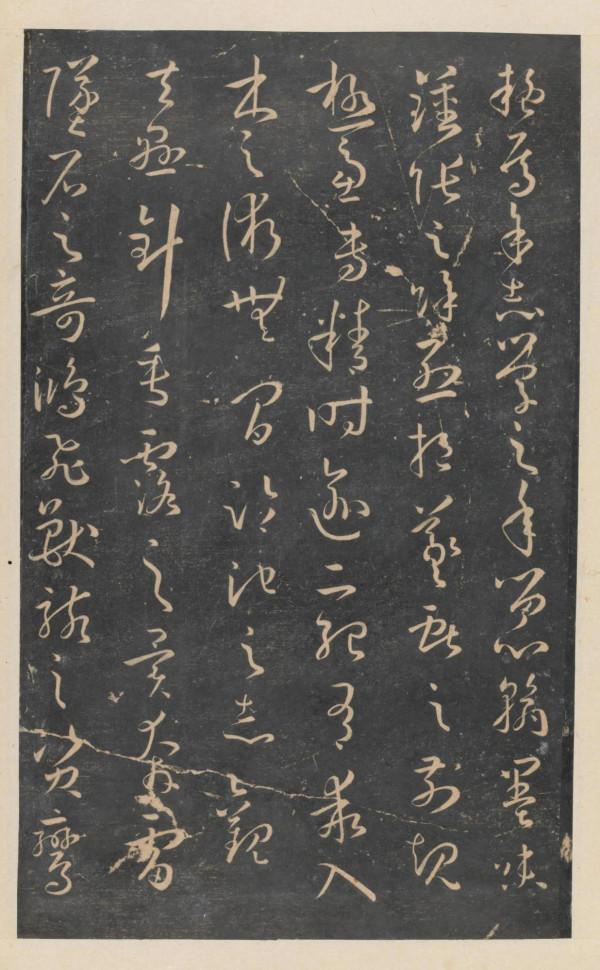 疑焉余志學之年留心翰墨味
鍾張之餘烈挹羲獻之前規
極慮專精時逾二紀有乖入
木之術無間臨池之志觀
夫懸針垂露之異奔雷
墜石之奇鴻飛獸駭之資鸞